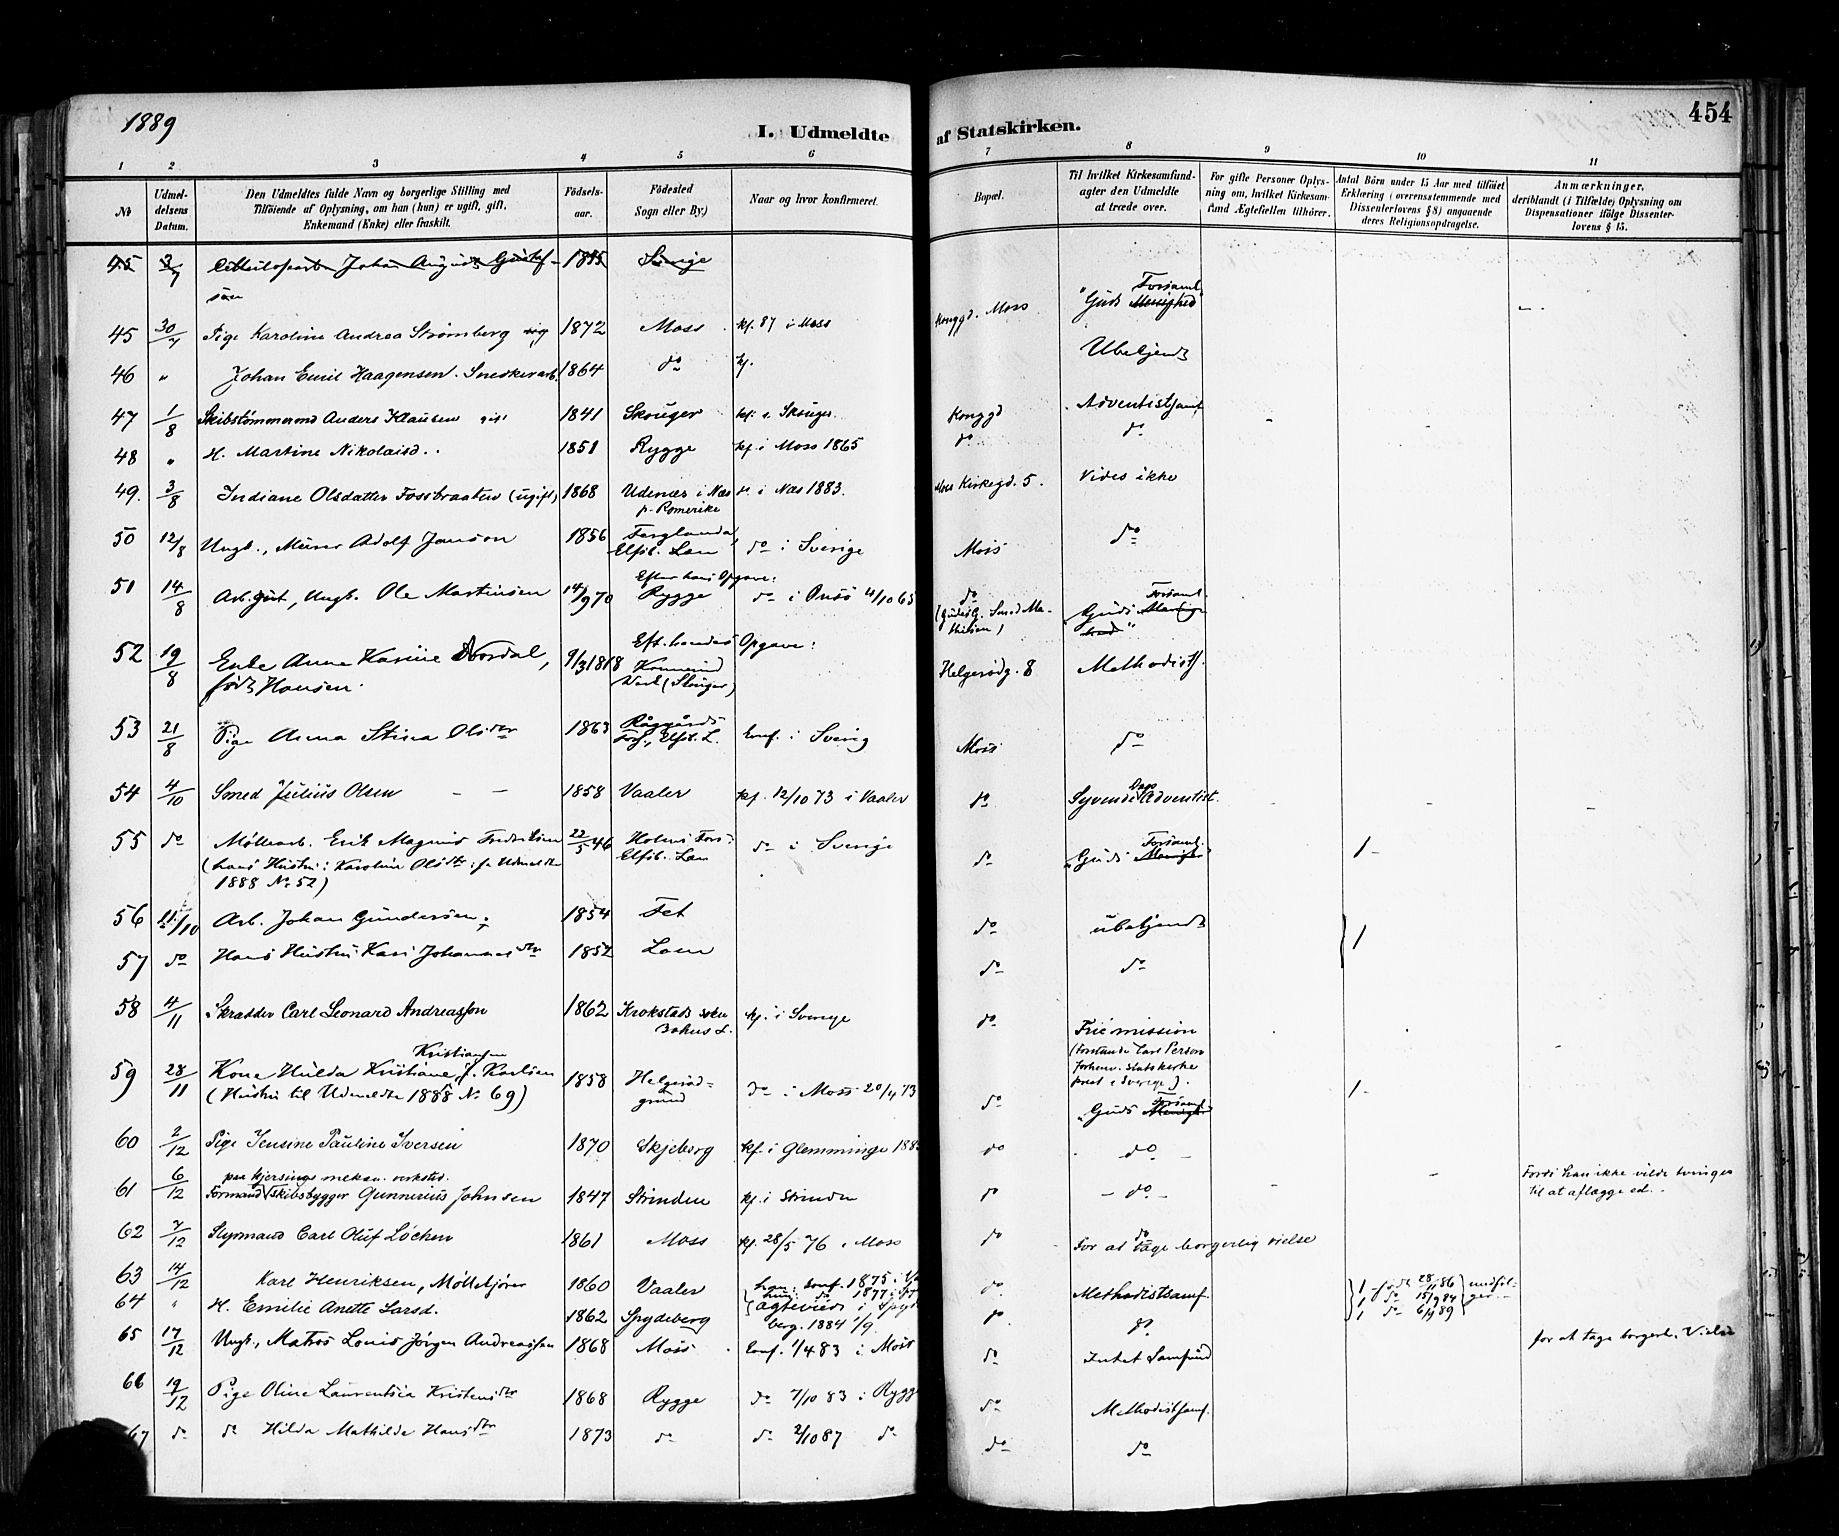 1889
I. Udmeldte af Statskirken.
454
1 2 3 4 5 6 7 8 9 10 11
No
Udmeldelsens Datum.
Den Udmeldtes fulde Navn og borgerlige Stilling med
Tilføiende af Oplysning, om han (hun) er ugift, gift,
Enkemand (Enke) eller fraskilt.
Fødselsaar.
Fødested
Sogn eller By.)
Naar og hvor konfirmeret.
Bopæl.
Til hvilket Kirkesamfund-
agter den Udmeldte
at træde over.
For gifte Personer Oplys-
ning om, hvilket Kirkesam-
fund Ægtefællen tilhører.
Antal Børn under 15 Aar med tilføiet
Erklæring (overensstemmende med
Dissenterlovens § 8) angaaende
deres Religionsopdragelse.
Anmærkninger,
deriblandt (i Tilfælde) Oplysning om
Dispensationer ifølge Dissenter-
lovens § 15.
45 Johan August Gustaf-
søn Sverige
45 30/7 Pige Karoline Andrea Strømberg 1872 Moss kf. 87 i Moss Konggd. Moss "Guds Forsaml
46 " Johan Emil Haagensen. Snedkerarb. 1864 do kf. Ubekjendt
47 1/8 Skibstømmermd Anders Klausen gift 1841 Skouger kf. i Skouger Konggd Adventistsamf
48 " H. Martine Nikolaisd. 1851 Rygge kf. i Moss 1865 do do
49. 3/8 Indiane Olsdatter Fossbraaten (ugift) 1868 Udenæs i Næs
p. Romerike i Næs 1883. Moss Kirkegd. 5. Vides ikke
50 12/8 Ungk., Murer Adolf Janson 1856 Elfsb. Len do i Sverige Moss do
51 14/8 Arb.gut, Ungk. Ole Martinsen 14/9 70 Efter hans Opgave:
Rygge do i Onsø 4/10 65 do
Smed Ma-
thisen) "Guds Forsaml.
52 19/8 Enke Anne Karine Nordal,
født Hansen. 9/3 1818 Eft. hendes Opgave:
(Skouger) Helgerødg. 8 Methodistf.
53 21/8 Pige Anna Stina Olsdtr 1863 Elfsb. L. Conf. i Sverig Moss do
54 4/10 Smed Julius Olsen 1858 Vaaler kf. 12/10 73 i Vaaler do Syvende Dags Adventist.
55 do Møllearb. Erik Magnus Fredriksen 22/5 46 Holms Fors:
Elfsb. Len do i Sverige do "Guds Forsaml. 1
(hans Hustru: Karoline Olsdtr: f. Udmeldte
1888 No 52)
56 21/10 Arb. Johan Gundersen, 1854 Fet do ubekjendt 1
57 do Hans Hustru Kari Johannesdtr 1852 Lom do do
58 4/11 Skrædder Carl Leonard Andreasson 1862 Krokstads soken
Bohus L. kf. i Sverige do Frie mission
(forstander Carl Person
forhenv. statskirke
prest i Sverige).
59 28/11 Kone Hulda Kristiane Kristiansen f. Karlsen 1858 Helgerød-
grund do i Moss 20/4 73 do "Guds Forsaml 1
(Hustru til Udmeldte 1888 No 69)
60 2/12 Pige Jensine Pauline Iversen 1870 Skjeberg kf. i Glemminge do do
61 6/12 paa Kjersings mekan. verksted.
Formand skibsbygger Gunnerius Johnsen 1847 Strinden kf. i Strinden do do Fordi han ikke vilde tvinges
til at aflægge ed.
62 7/12 Styrmand Carl Oluf Løchen 1861 Moss kf. 28/5 76 i Moss do do
For at tage borgerlig vielse
63 14/12 Karl Henriksen, Møllekjører 1860 Vaaler han: conf. 1875 i do Methodistsamf. 1 født 28/11 86
64 " H. Emilie Anette Larsd. 1862 Spydeberg hun: do 1877 i
Ægteviede i Spyde
berg. 1884 1/9. do do 1 do 15/9 84
1 do 6/9 89
65 17/12 Ungk., Matros Louis Jørgen Andreassen 1868 Moss Conf. 1/4 83 i Moss do Intet Samfund for at tage borgerl. Vielse
66 19/12 Pige Oline Laurentsia Kristensdtr 1868 Rygge do 7/10 83 i Rygge do Methodistsamf.
67 do do Hilda Mathilde Hansdtr 1873 do do 2/10 87 do do do